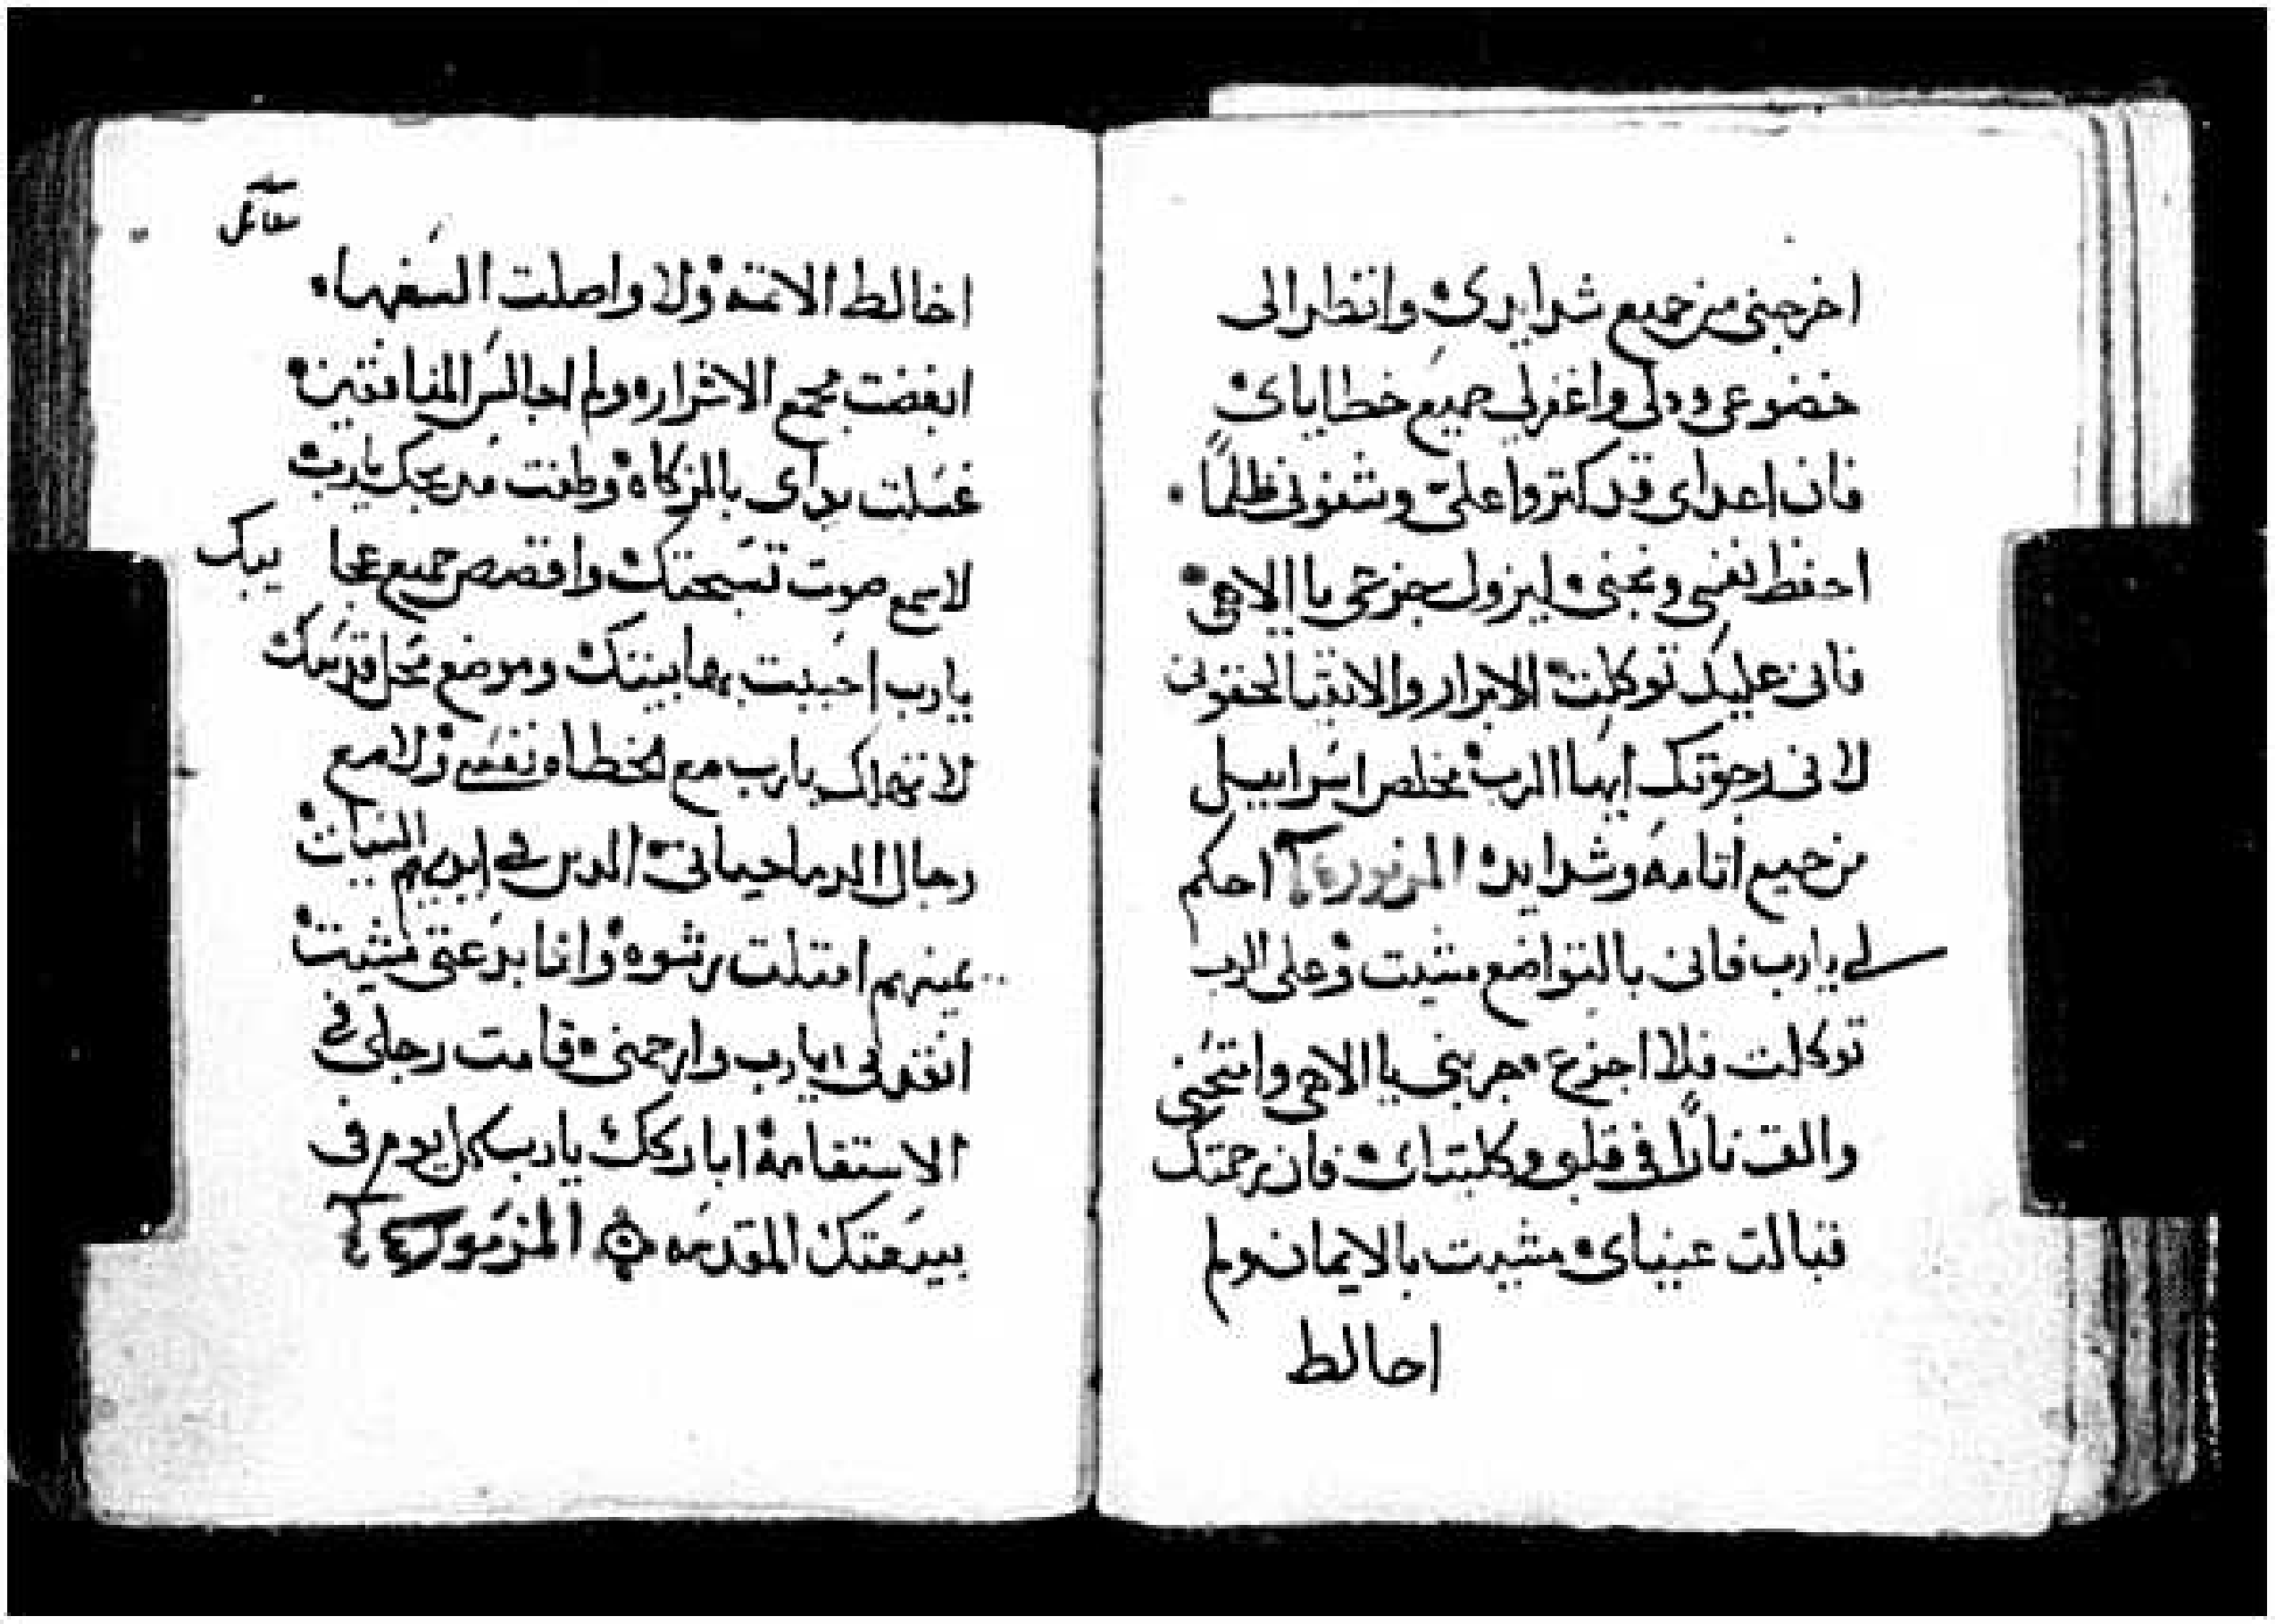 اخرجنى من جميع شدايدى وانظر الى
خضوعى وذلى واغفر لى جميع خطاياى
فان اعداى قد كتروا على وشنونى ظلمًا
احفظ نفسى ونجنى ليزول جزعى يا الاهى
فانى عليك توكلت الابرار والاتقيا لحقونى
لانى رجوتك ايها الرب مخلص اسراييل
من جميع اتامه وشدايده المزمور احكم
لى يارب فانى بالتواضع مشيت وعلى الرب
توكلت فلا اجزع جربنى يا الاهى وامتحنى
والق نارًا فى قلبى وكليتاى فان رحمتك
قبالت عيناى مشيت بالايمان ولم
احالط
مقابل
اخالط الاتمه ولا واصلت السفهاء
ابغضت مجمع الاشرار ولم اجالس المنافقين
غسلت يداى بالزكاه وطفت مدبحك يارب
لاسمع صوت تسبحتك واقصص جميع عجا يبك
يارب احببت بها بيتك وموضع محل قدسك
لا تهلك يارب مع الخطاه نفسى ولا مع
رجال الدما حياتى الدين فى ايديهم السيات
يمينهم امتلت رشوه وانا بدعتى مشيت
انقدنى يارب وارحمنى قامت رجلى فى
الاستقامه اباركك يارب كل يوم فى
بيعتك المقدسه المزمور